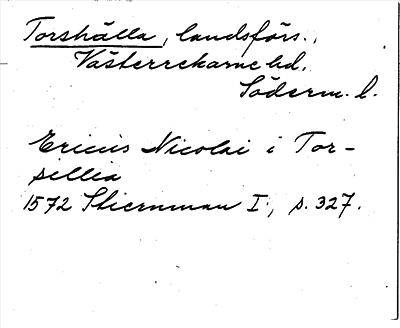 Torshälla, landsförs.,
Västerrekarne hd.
Söderm. l.
Ericus Nicolai i Tor-
sellia
1572 Stiernman I, s. 327.